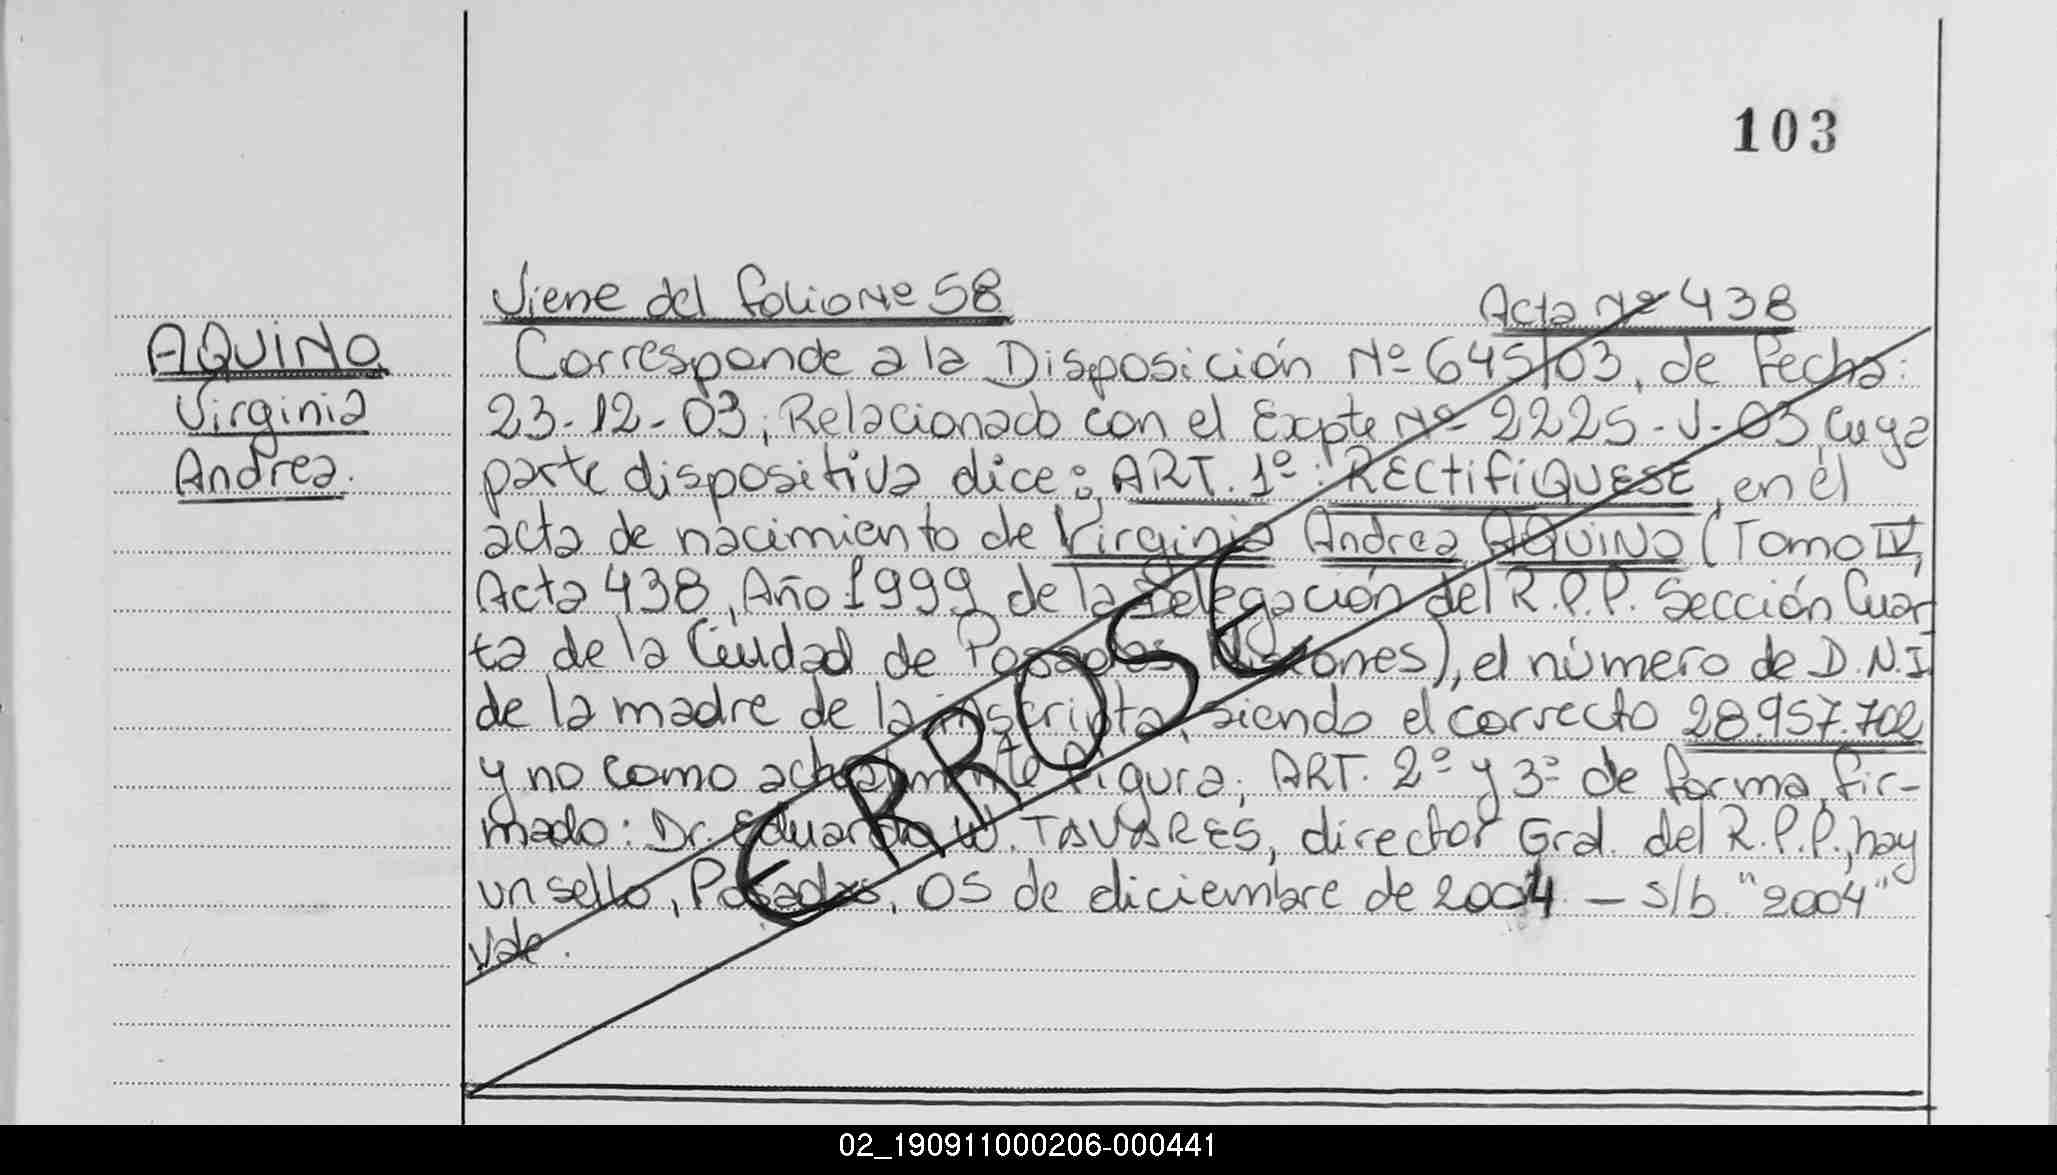 103
Viene del folio Nº 58
Acta Nº 438
AQUINO
Virginia
Andrea.
Corresponde a la Disposición Nº 645/03, de Fecha:
23-12-03; Relacionado con el Expte Nº 2225-J-03 Cuya
parte dispositiva dice: ART. 1º: RECTIFIQUESE, en el
acta de nacimiento de Virginia Andrea AQUINO (Tomo IV,
Acta 438, Año 1999 de la Delegación del R.P.P. Sección Cuar
ta de la Ciudad de Posadas Misiones), el número de D.N.I
de la madre de la inscripta, siendo el correcto 28.957.702
y no como actualmente figura; ART. 2º y 3º de forma, fir-
mado: Dr. Eduardo W. TAVARES, director Gral. del R.P.P., hay
un sello, Posadas, 05 de diciembre de 2004 - s/b "2004"
Vale.
ERROSE
02_190911000206-000441